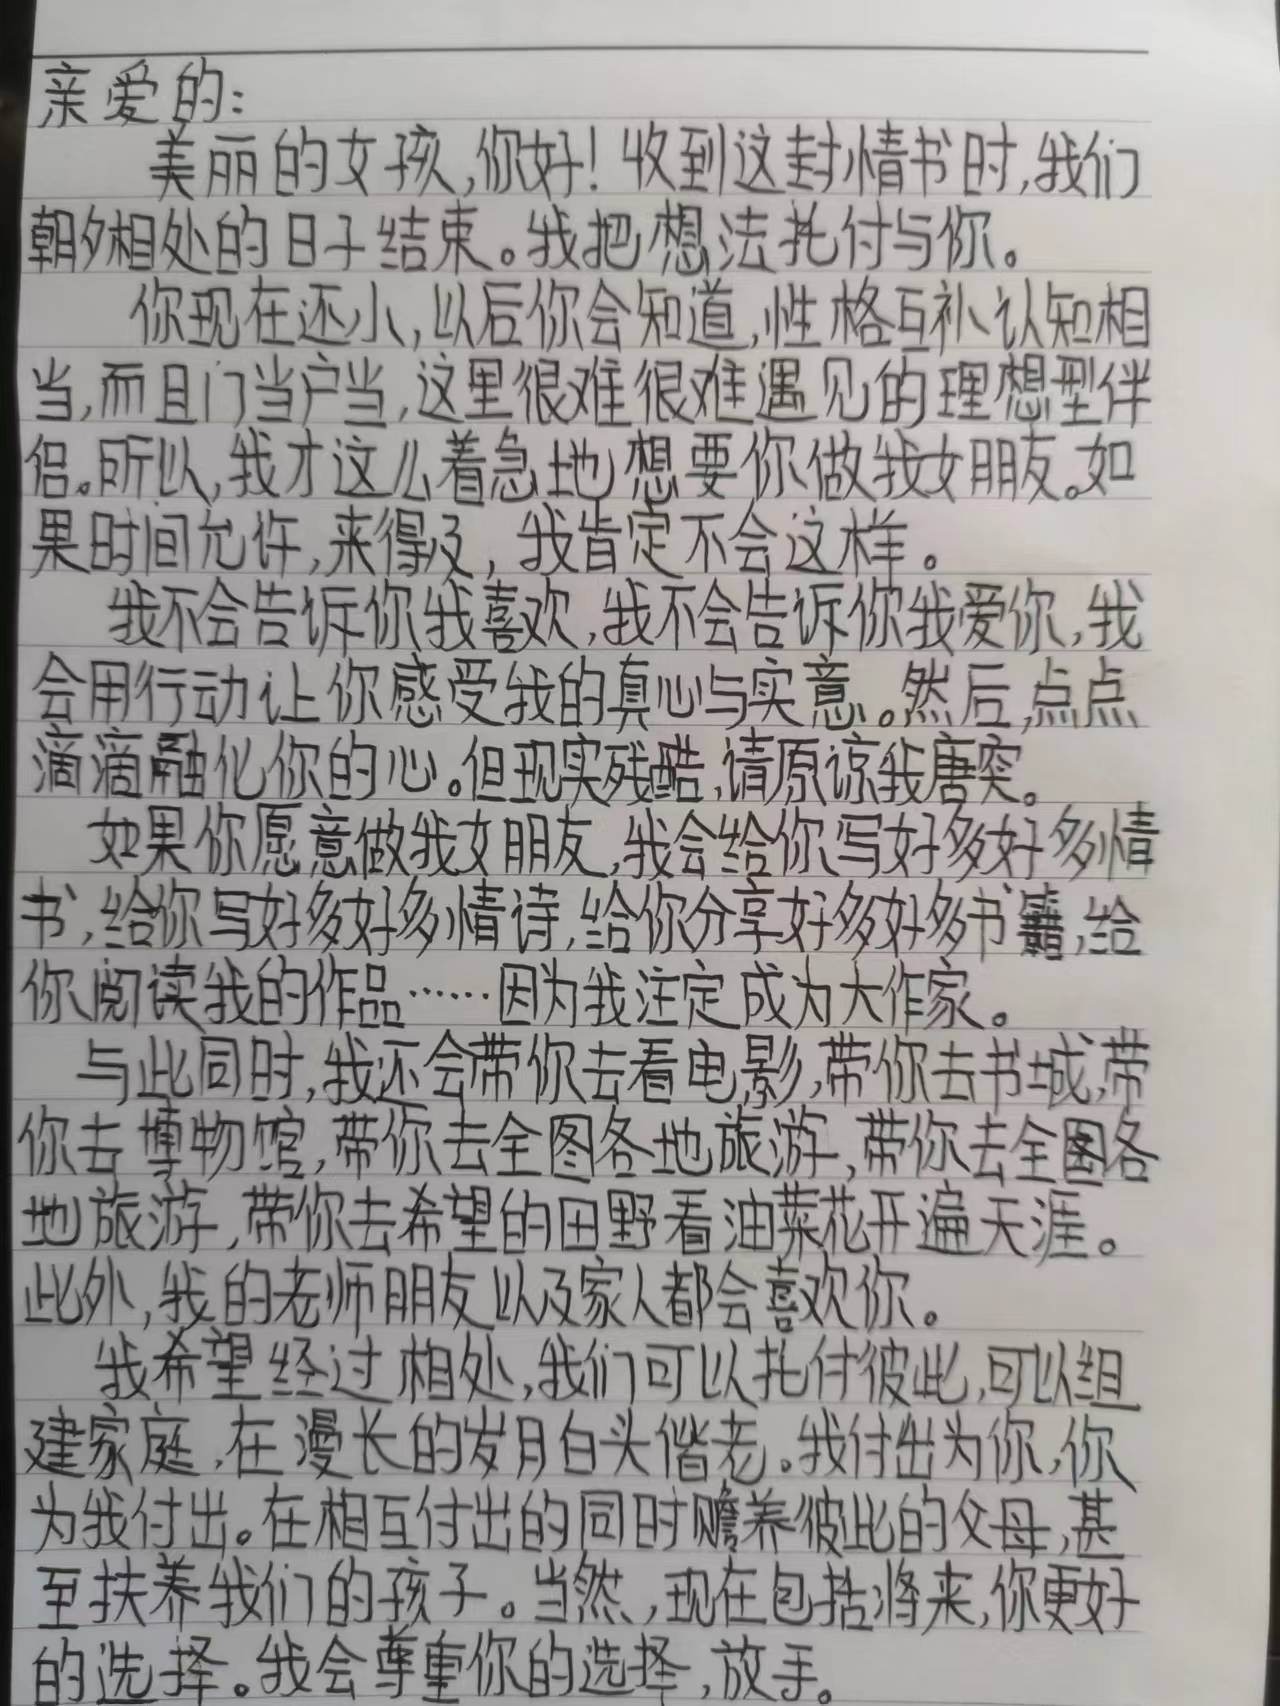 亲爱的：
美丽的女孩，你好！收到这封情书时，我们
朝夕相处的日子结束。我把想法托付与你。
你现在还小，以后你会知道，性格互补认知相
当，而且门当户当，这里很难很难遇见的理想型伴
侣。所以，我才这么着急地想要你做我女朋友。如
果时间允许，来得及，我肯定不会这样。
我不会告诉你我喜欢，我不会告诉你我爱你，我
会用行动让你感受我的真心与实意。然后，点点
滴滴融化你的心。但现实残酷，请原谅我唐突。
如果你愿意做我女朋友，我会给你写好多好多情
书，给你写好多好多情诗，给你分享好多好多书籍，给
你阅读我的作品……因为我注定成为大作家。
与此同时，我还会带你去看电影，带你去书城，带
你去博物馆，带你去全图各地旅游，带你去全图各
地旅游，带你去希望的田野看油菜花开遍天涯。
此外，我的老师朋友以及家人都会喜欢你。
我希望经过相处，我们可以托付彼此，可以组
建家庭，在漫长的岁月白头偕老。我付出为你，你
为我付出。在相互付出的同时赡养彼此的父母，甚
至扶养我们的孩子。当然，现在包括将来，你更好
的选择。我会尊重你的选择，放手。